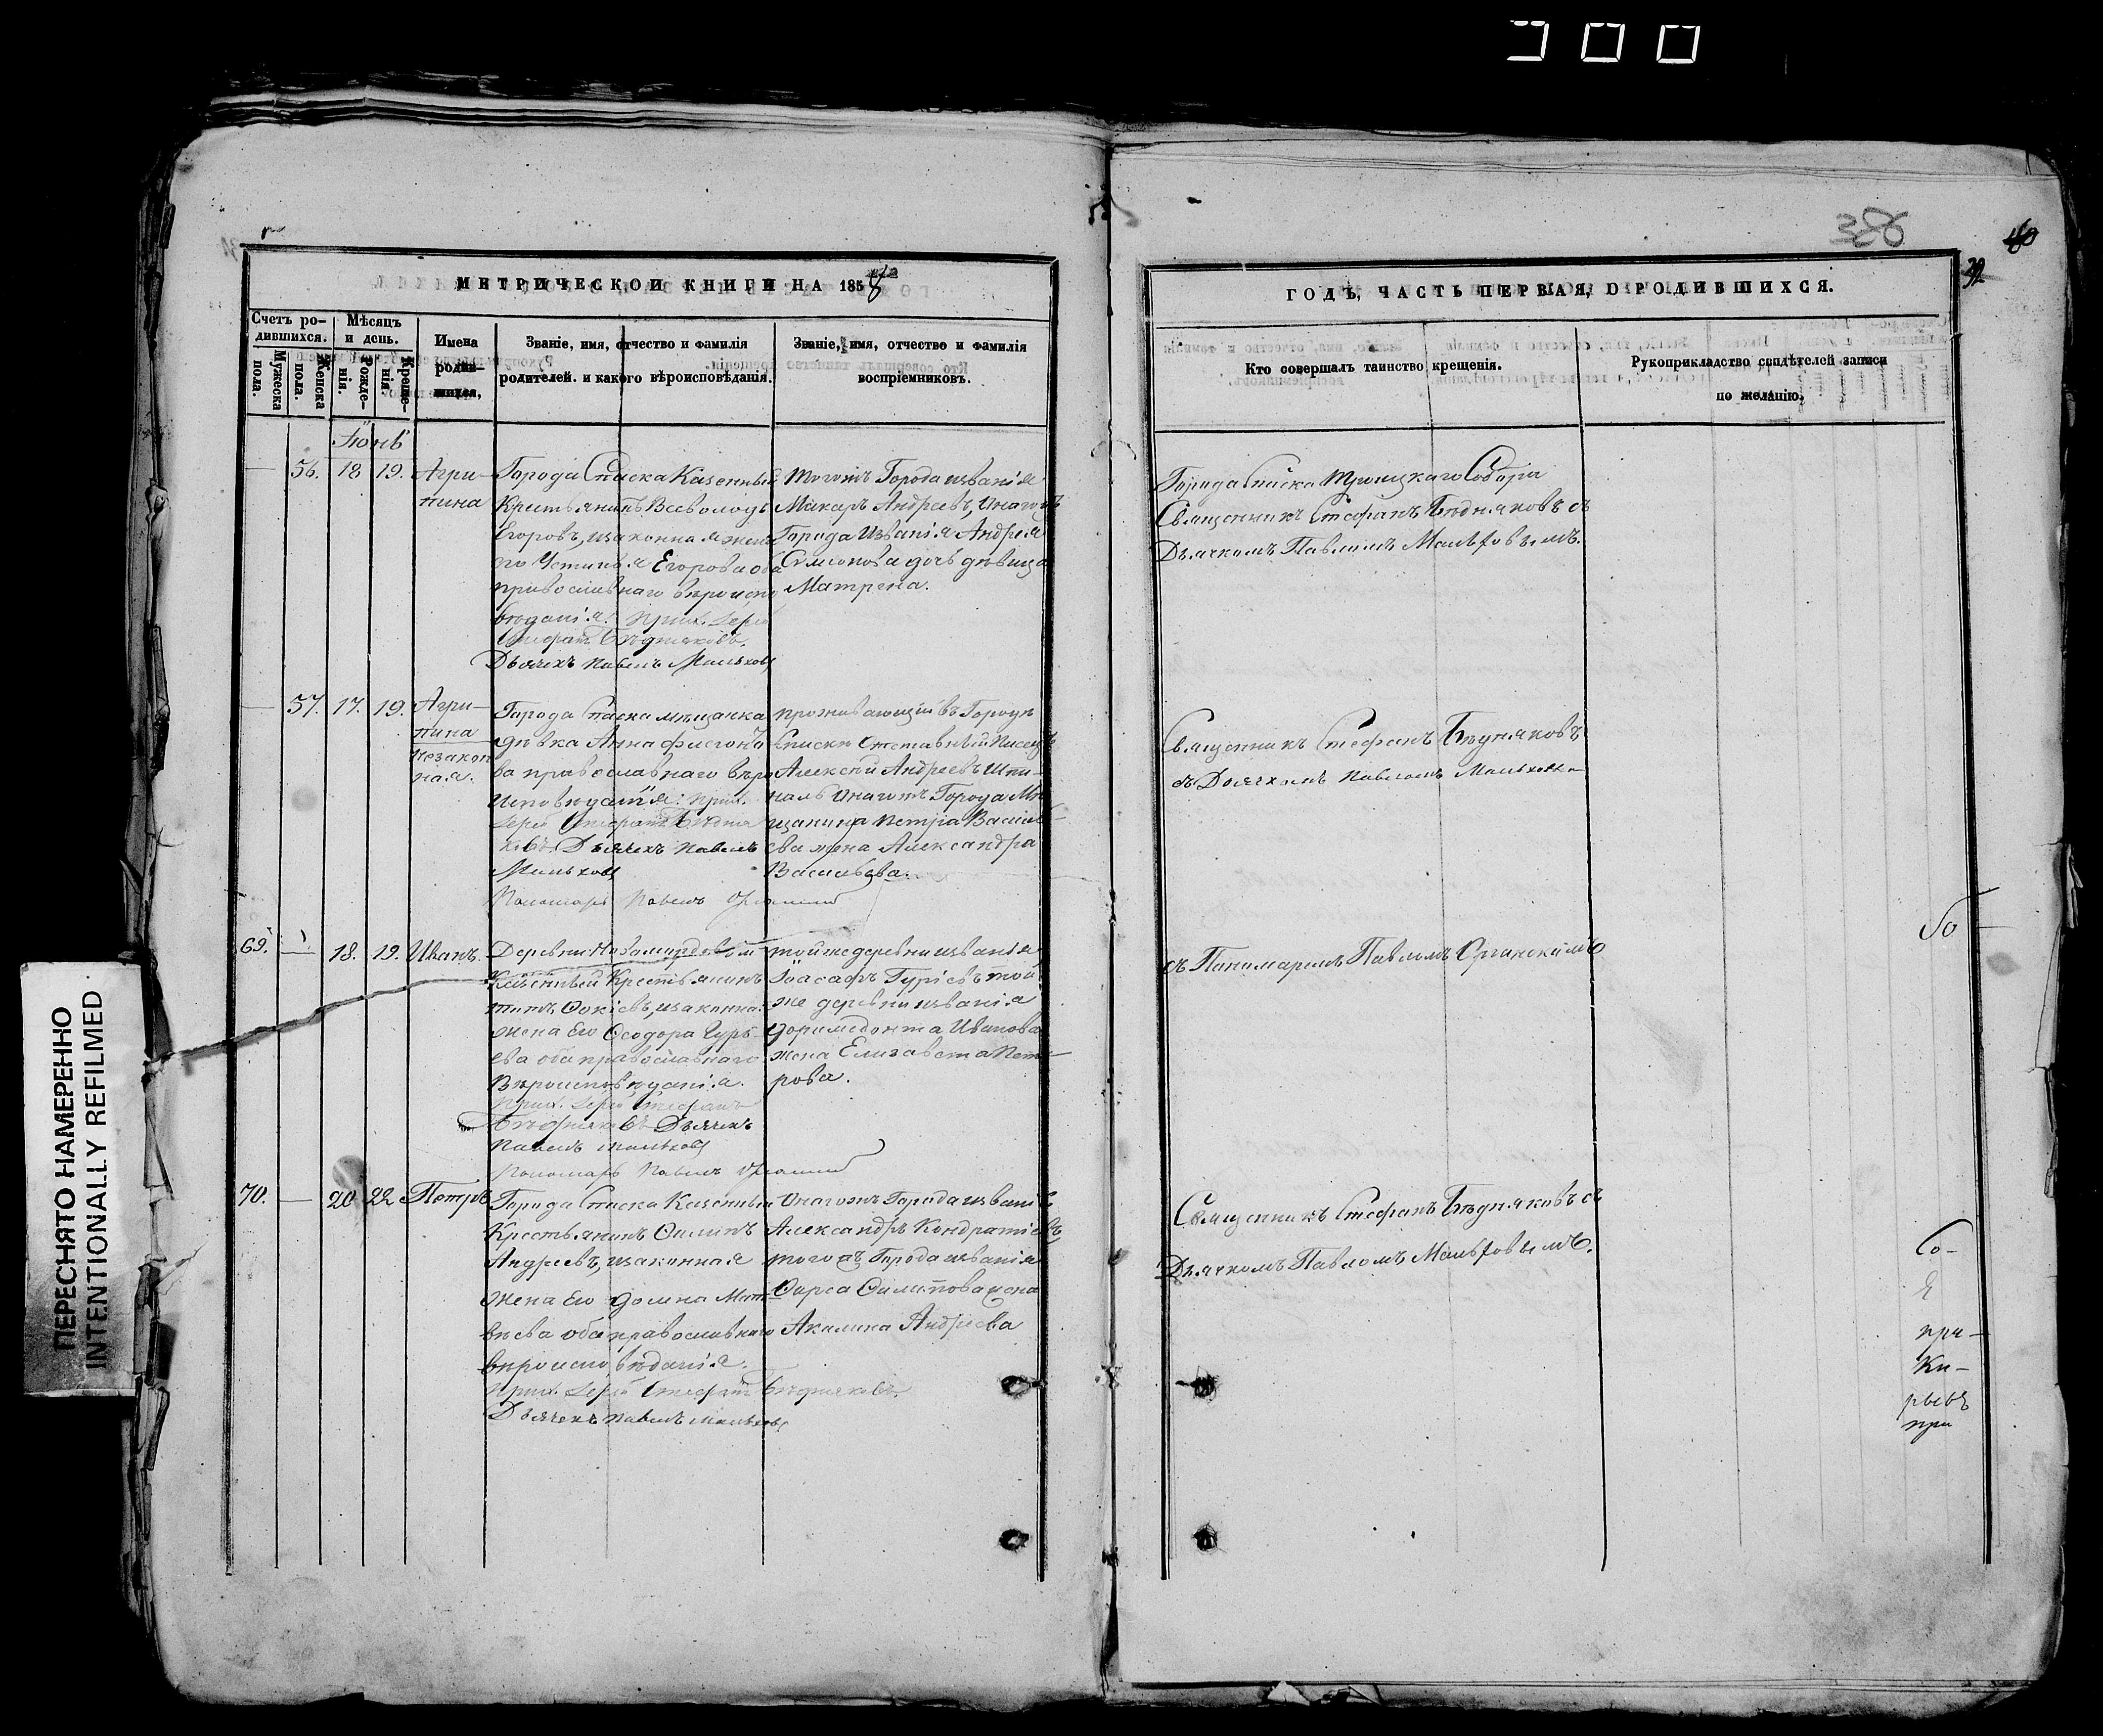 386
40
32
МЕТРИЧЕСКОЙ КНИГИ НА 1858
ГОДЪ, ЧАСТЬ ПЕРВАЯ, О РОДИВШИХСЯ.
Счетъ ро-
дившихся.
Мужеска
пола.
Женска
пола.
Мѣсяцъ
и день.
Рожде-
нія.
Креще-
нія.
Имена
родив-
шихся.
Званіе, имя, отчество и фамилія
родителей. и какого вѣроисповѣданія.
Званіе, имя, отчество и фамилія
воспріемниковъ.
Кто совершалъ таинство крещенія.
Рукоприкладство свидѣтелей записи
по желанію.
Іюнь
— 56. 18 19. Агри-
пина
Города Спаска Казенный
Крестьянинъ Всеволодъ
Егоровъ, изаконная жена
его Устинья Егорова оба
православнаго вѣроиспо
вѣданія. Прих. Іерей
Стефанъ Бѣдняковъ.
Дьячекъ Павелъ Мальховъ
тогожъ Города извания
Макаръ Андреевъ, Инагожъ
Города Изванія Андрея
Симонова дочь дѣвица
Матрена.
Города Спаска Троицкаго Собора
Священникъ Стефанъ Бѣдняковъ съ
Дьячкомъ Павломъ Мальховымъ.
— 57. 17. 19. Агри-
пина
незакон
ная.
Города Спаска мѣщанка
дѣвка Анна
ва православнаго вѣро
исповѣданія: Прих.
Іерей Стефанъ Бѣдня
ковъ. Дьячекъ Павелъ
Мальховъ
Пономарь Павелъ
проживающій въ Городѣ
Спаске Отставный Писецъ
Алексѣй Андреевъ
Инагожъ Города Мѣ
щанина Петра Василь-
ева жена Александра
Васильева.
Священникъ Стефанъ Бѣдняковъ
съ Дьячкомъ Павломъ
69. — 18. 19. Иванъ.
Деревни
Казенный Крестьянинъ
изаконная
жена Его Ѳеодора Гурь-
ева оба православнаго
Вѣроисповѣданія.
Прих. Іерей Стефанъ
Бѣдняковъ Дьячекъ
Павелъ Мальховъ
Пономарь Павелъ
тойже деревни изванія
Іоасафъ Гуріевъ той
же деревни изванія
Доримедонта Иванова
жена Елизавета Пет-
рова.
съ Понамаремъ Павломъ
70. — 20 22 Петръ
Города Спаска Казенный
Крестьянинъ Филипъ
Андреевъ, изаконная
жена Его Домна Мат
вѣева оба православнаго
вѣроисповѣданія.
Прих. Іерей Стефанъ Бѣдняковъ.
Дьячекъ Павелъ Мальховъ
Инагожъ Города изваніе
Александръ Кондратіевъ,
тогожъ Города изванія
Филипова жена
Акилина Андреева
Священникъ Стефанъ Бѣдняковъ съ
Дьячкомъ Павломъ Мальховымъ.
Со-
при-
Ки-
рьевъ
при
ПЕРЕСНЯТО НАМЕРЕННО
INTENTIONALLY REFILMED